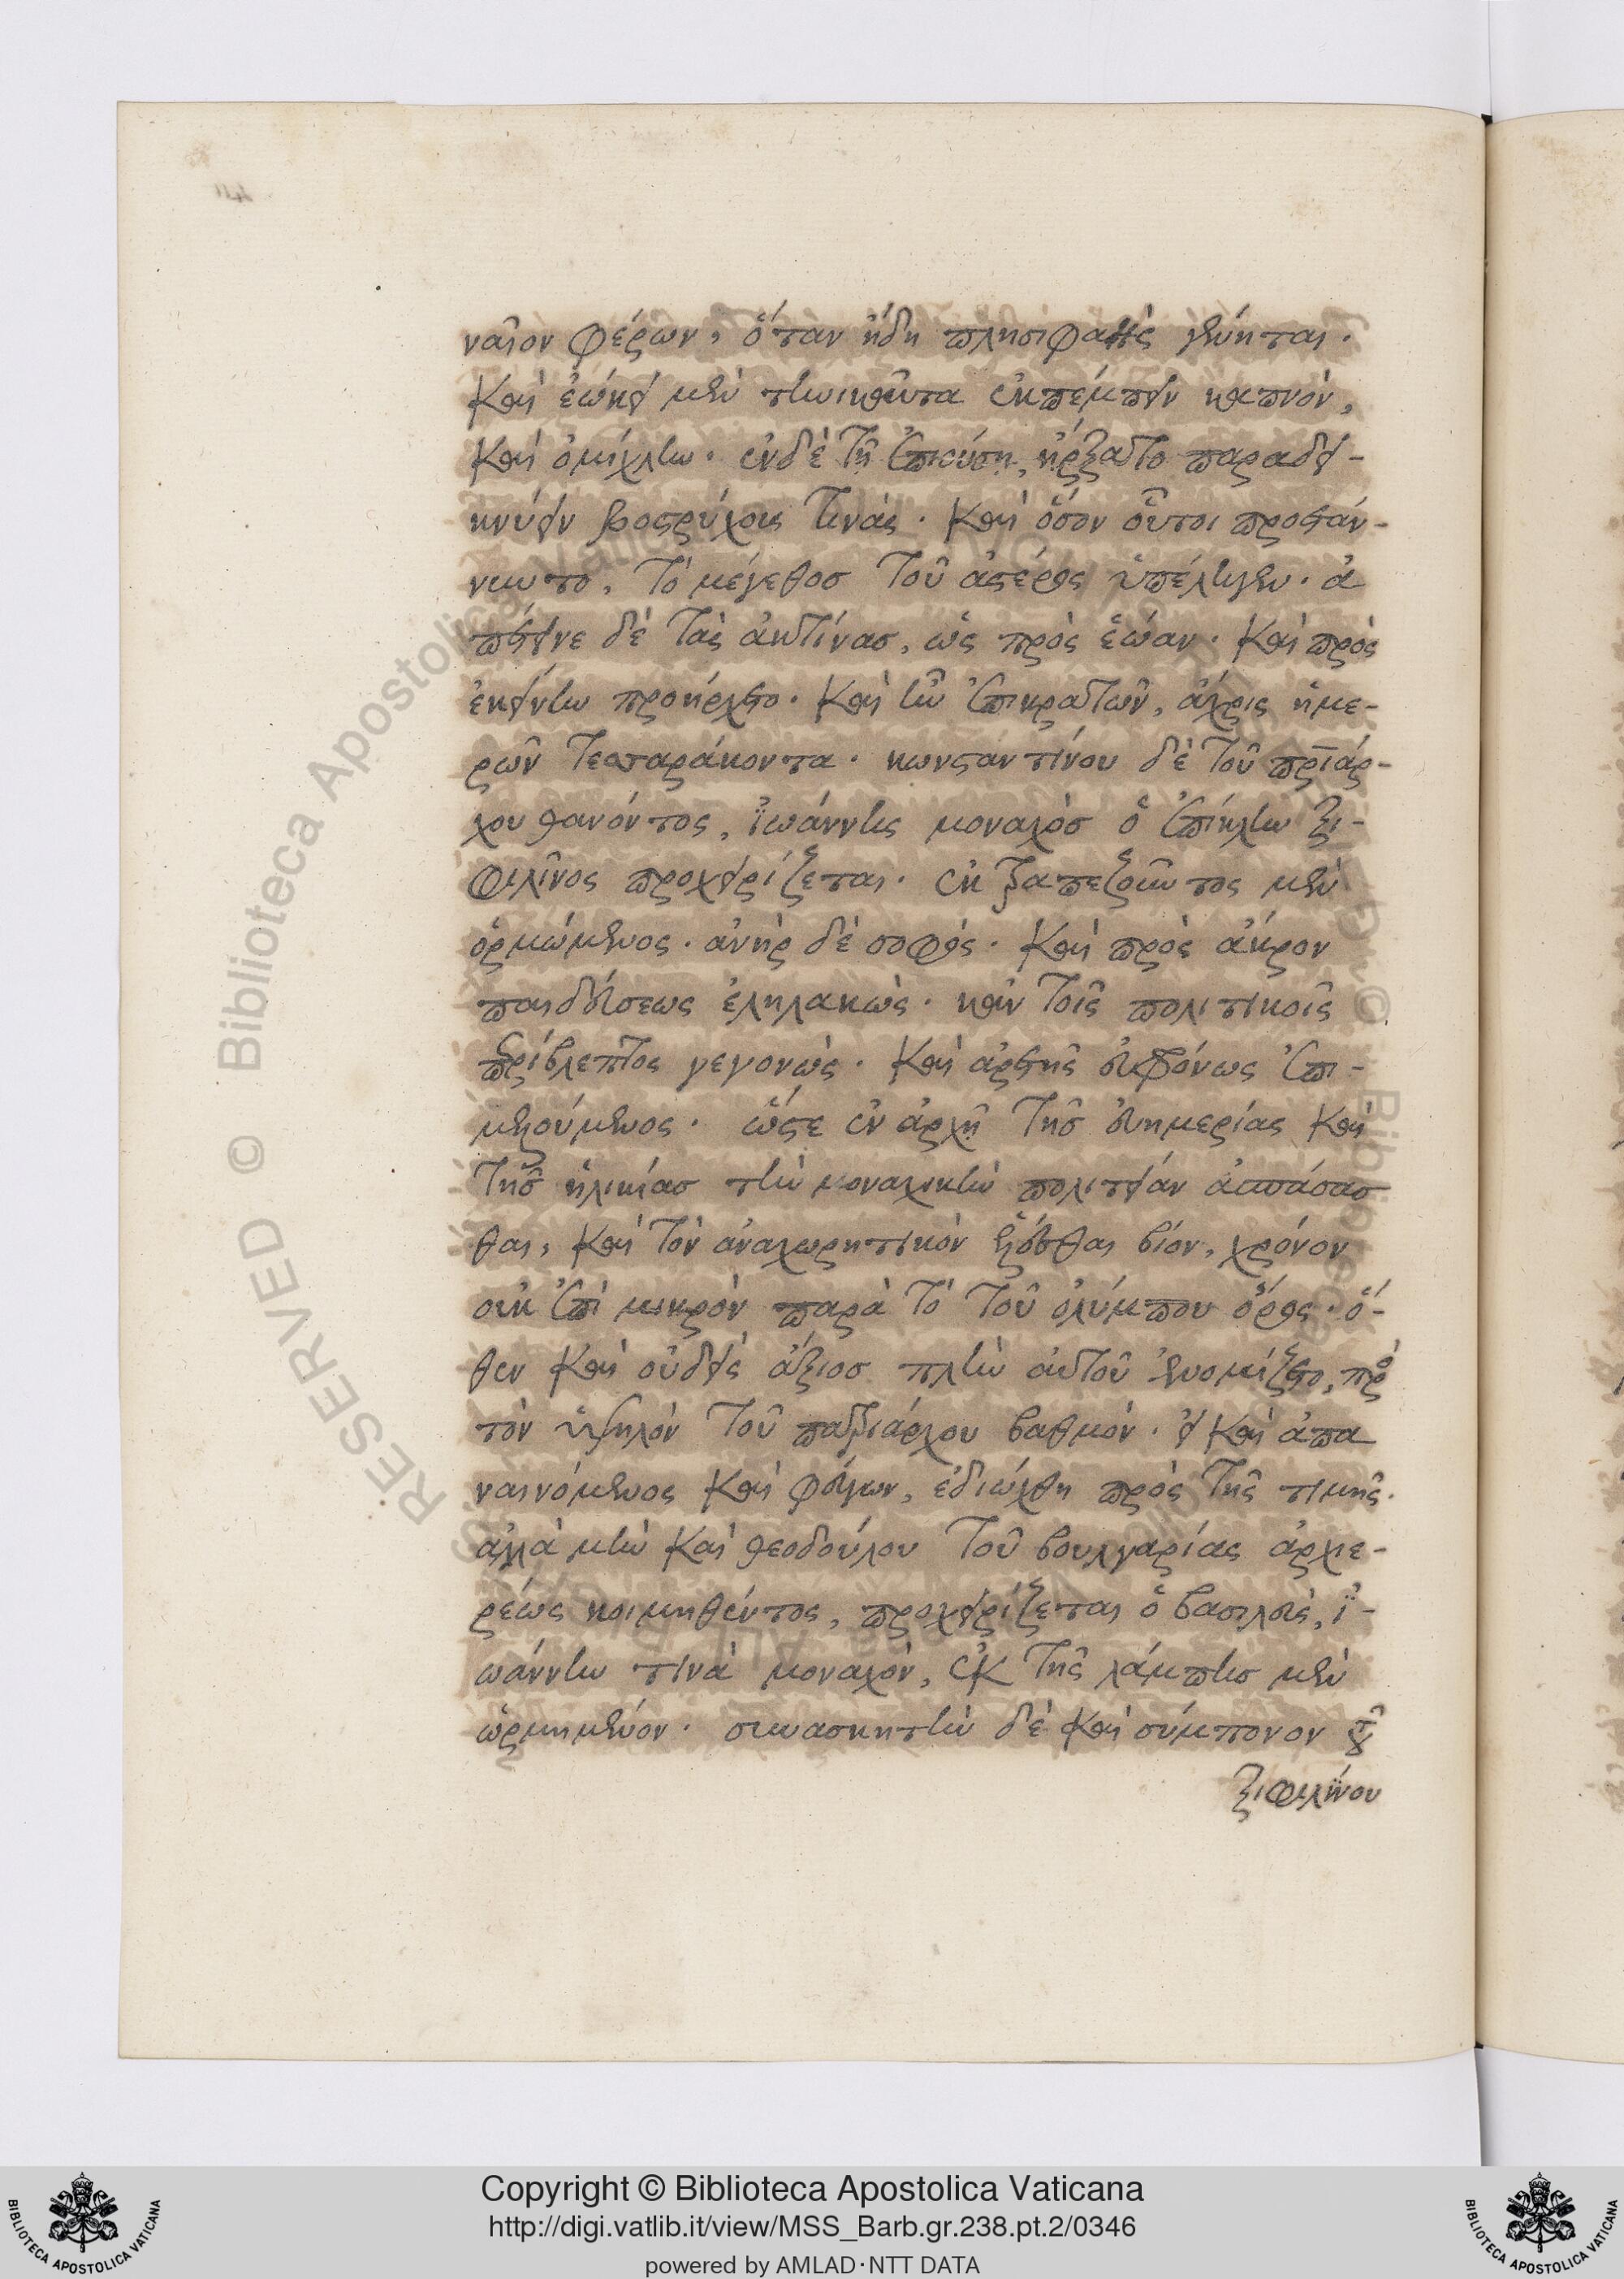 ναῖον φέρων, ὅταν ἤδη πλησιφαὴς γένηται.
καὶ ἐώκει μὲν τηνικαῦτα ἐκπέμπειν καπνὸν,
καὶ ὁμίχλην. ἐν δὲ τῇ ἐπιούσῃ, ἤρξατο παραδει-
κνύειν βοστρύχους τινάς. καὶ ὅσον οὗτοι προετάν-
νυντο, τὸ μέγεθοσ τοῦ ἀστέρος ὑπέληγεν. ἀ
πέτεινε δὲ τὰς ἀκτίνασ, ὡς πρὸς ἑώαν. καὶ πρὸς
ἐκείνην προήρχετο. καὶ ἦν ἐπικρατῶν, ἄχρις ἡμε-
ρῶν τεσσαράκοντα. κωνσταντίνου δὲ τοῦ πριάρ-
χου θανόντος, ἰωάννης μοναχὸσ ὁ ἐπίκλην ξι-
φιλῖνος προχειρίζεται. ἐκ τραπεζοῦντος μὲν
ὁρμώμενος. ἀνὴρ δὲ σοφὸς. καὶ πρὸς ἄκρον
παιδεύσεως ἐληλακὼς. κἀν τοῖς πολιτικοῖς
περίβλεπτος γεγονὼς. καὶ ἀρετῆς εὐφρόνως ἐπι-
μελούμενος. ὥστε ἐν ἀρχῇ τῆσ εὐημερίας καὶ
τῆσ ἡλικίασ τὴν μοναχικὴν πολιτείαν ἀσπάσασ
θαι, καὶ τὸν ἀναχωρητικὸν ἑλέσθαι βίον, χρόνον
οὐκ ἐπὶ μικρὸν παρὰ τὸ τοῦ ὀλύμπου ὄρος. ὅ-
θεν καὶ οὐδεὶς ἄξιοσ πλὴν αὐτοῦ ἐνομίζετο, πρὸ
τὸν ὑψηλὸν τοῦ πατριάρχου βαθμόν. εἰ καὶ ἀπα
ναινόμενος καὶ φεύγων, ἐδιώχθη πρὸς τῆς τιμῆς.
ἀλλὰ μὴν καὶ θεοδούλου τοῦ βουλγαρίας ἀρχιε-
ρέως κοιμηθέντος, προχειρίζεται ὁ βασιλεὺς, ἰ-
ωάννην τινὰ μοναχὸν, ἐκ τῆς λάμπησ μὲν
ὡρμημένον. συνασκητὴν δὲ καὶ σύμπονον τοῦ
ξιφιλίνου
Copyright © Biblioteca Apostolica Vaticana
http://digi.vatlib.it/view/MSS_Barb.gr.238.pt.2/0346
powered by AMLAD·NTT DATA